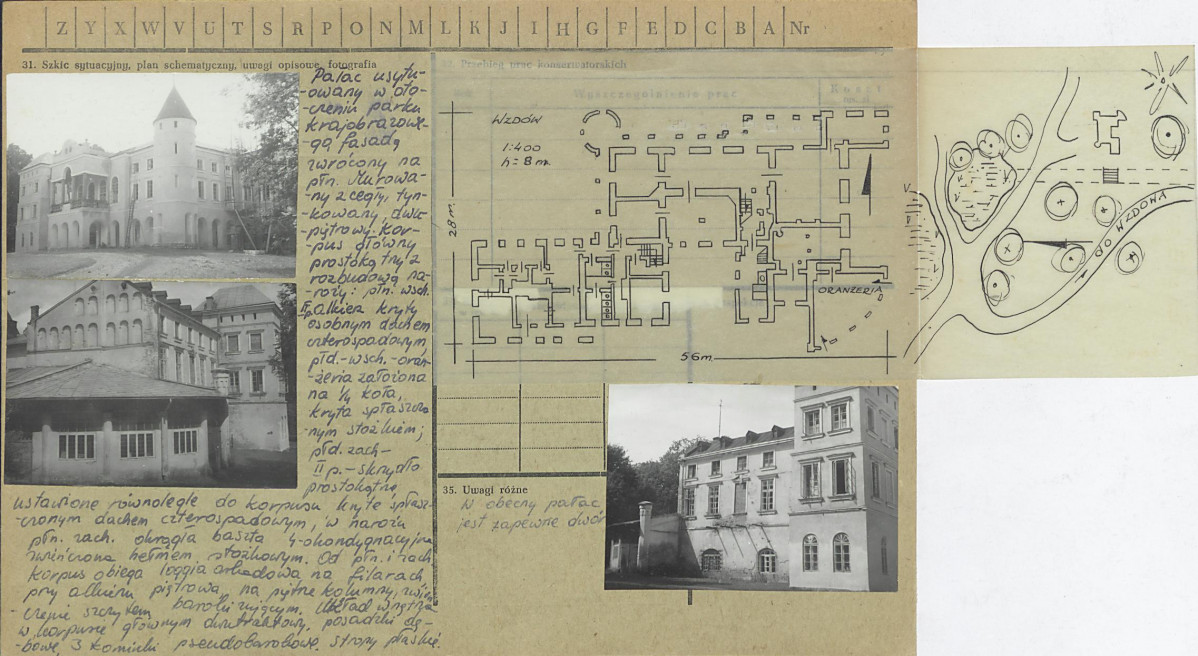 Z Y X W V U T S R P O N M L K J I H G F E D C B A Nr
31. Szkic sytuacyjny, plan schematyczny, uwagi opisowe, fotografia
Pałac usytu-
-owany w oto-
-czeniu parku
krajobrazowe-
-go, fasadą
zwrócony na
płn. Murowa-
ny z cegły, tyn-
-kowany, dwu-
-piętrowy. Kor-
-pus główny
prostokątny z
rozbudową na-
-roży: płn. wsch.
II p. alkierz kryty
osobnym dachem
czterospadowym,
płd.-wsch.-oran-
-żeria założona
na 1/4 koła,
kryta spłaszczo-
nym stożkiem;
płd. zach-
II p. - skrzydło
prostokątne
ustawione równolegle do korpusu kryte spłasz-
-czonym dachem czterospadowym, w narożu
płn. zach. okrągła baszta 4-okondygnacyjna
zwieńczona hełmem stożkowym. Od płn. i zach.
korpus obiega loggia arkadowa na filarach
przy alkierzu piętrowa, na piętrze kolumny, zwień-
-czenie szczytem barokizującym. Układ wnętrza
w korpusie głównym dwutraktowy, posadzki dę-
-bowe, 3 kominki pseudobarokowe, stropy płaskie.
32. Przebieg prac konserwatorskich
Wyszczególnienie prac
Koszt
WZDÓW
1:400
h = 8 m.
28 m.
56 m.
ORANŻERIA
DO WZDOWA
35. Uwagi różne
W obecny pałac
jest zapewne dwór